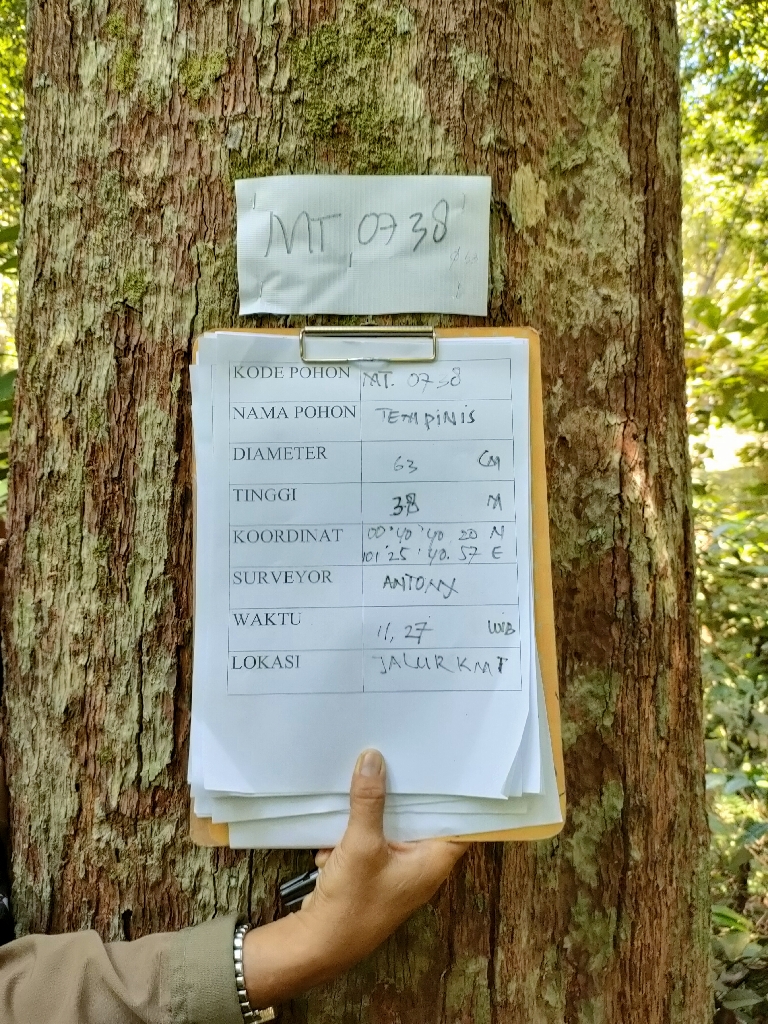 MT 0738
KODE POHON MT. 0738
NAMA POHON TEMPINIS
DIAMETER 63 CM
TINGGI 38 M
KOORDINAT 00°40'40.20 N
101°25'40.57 E
SURVEYOR ANTONY
WAKTU 11,27 WIB
LOKASI JALUR KMT